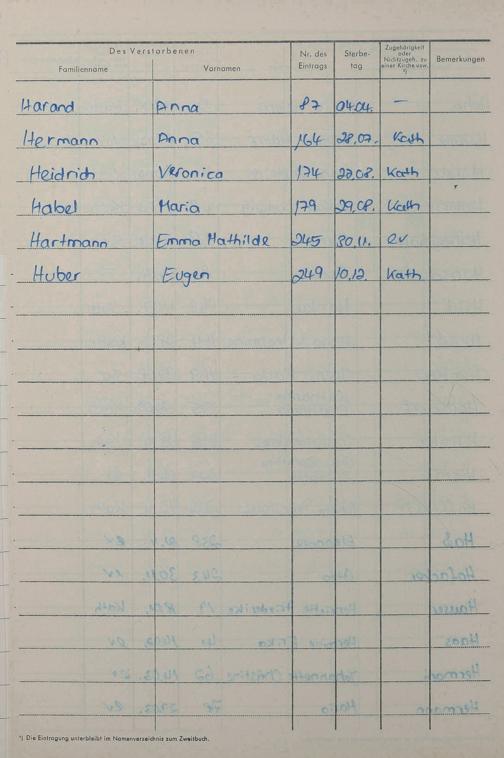 Des Verstorbenen Nr. des Eintrags Sterbe- tag Zugehörigkeit oder Nichtzugeh. zu einer Kirche usw. *) Bemerkungen
Familienname Vornamen
Harand Anna 87 04.04. —
Hermann Anna 164 28.07. Kath
Heidrich Veronica 174 22.08. Kath
Habel Maria 179 29.08. Kath
Hartmann Emma Mathilde 245 30.11. ev
Huber Eugen 249 10.12. Kath
*) Die Eintragung unterbleibt im Namenverzeichnis zum Zweitbuch.